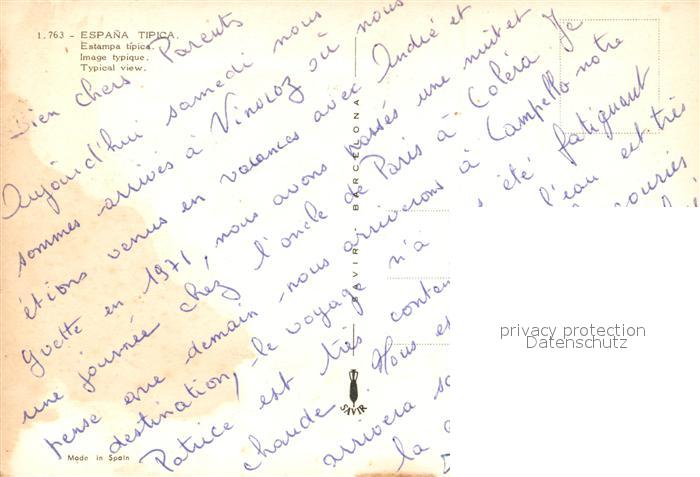 1.763 - ESPAÑA TIPICA.
Estampa típica.
Image typique.
Typical view.
Bien chers Parents
Aujourd'hui samedi nous
sommes arrivés à Vinaroz où nous
étions venus en vacances avec André et
Guette en 1971, nous avons passés une nuit et
une journée chez l'oncle de Paris à Coléra. Je
pense que demain nous arriverons à Campello notre
destination, le voyage n'a été fatiguant
Patrice est très l'eau est très
chaude. Nous
arrivera
la
SAVIR - BARCELONA
SAVIR
Made in Spain
privacy protection
Datenschutz